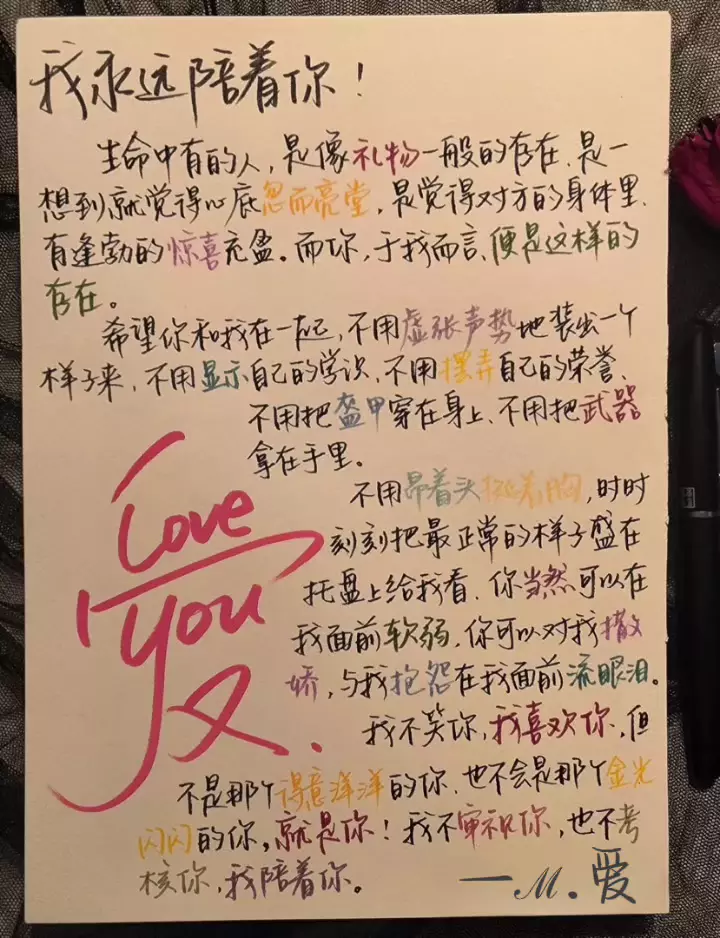 我永远陪着你！
生命中有的人，是像礼物一般的存在、是一
想到就觉得心底忽而亮堂，是觉得对方的身体里、
有蓬勃的惊喜充盈。而你，于我而言、便是这样的
存在。
希望你和我在一起，不用虚张声势地装出一个
样子来，不用显示自己的学识、不用摆弄自己的荣誉、
不用把盔甲穿在身上、不用把武器
拿在手里。
不用昂着头挺着胸，时时
刻刻把最正常的样子盛在
托盘上给我看、你当然可以在
我面前软弱，你可以对我撒
娇，与我抱怨在我面前流眼泪。
我不笑你，我喜欢你，但
不是那个得意洋洋的你、也不会是那个金光
闪闪的你，就是你！我不审视你，也不考
核你，我陪着你。
Love
You
又.
—M.爱